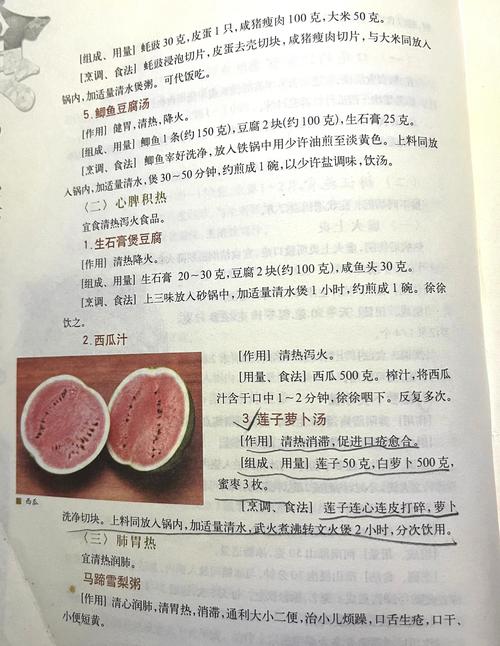 [组成、用量] 蚝豉30克,皮蛋1只,咸猪瘦肉100克,大米50克。
[烹调、食法] 蚝豉浸泡切片,皮蛋去壳切块,咸猪瘦肉切片,与大米同放入
锅内,加适量清水煲粥。可代饭吃。
5.鲫鱼豆腐汤
[作用] 健胃,清热,降火。
[组成、用量] 鲫鱼1条(约150克),豆腐2块(约100克),生石膏25克。
[烹调、食法] 鲫鱼宰好洗净,放入铁锅中用少许油煎至淡黄色。上料同放
入锅内,加适量清水,煲30~50分钟,约煎成1碗,以少许盐调味,饮汤。
(二) 心脾积热
宜食清热泻火食品。
1.生石膏煲豆腐
[作用] 清热降火。
[组成、用量] 生石膏 20~30克,豆腐2块(约100克),咸鱼头30克。
[烹调、食法] 上三味放入砂锅中,加适量清水煲1小时,约煎成1碗。徐徐
饮之。
2.西瓜汁
[作用] 清热泻火。
[用量、食法] 西瓜500克。榨汁,将西瓜
汁含于口中1~2分钟,徐徐咽下。反复多次。
3.莲子萝卜汤
[作用] 清热消滞,促进口疮愈合。
[组成、用量] 莲子50克,白萝卜500克,
蜜枣3枚。
[烹调、食法] 莲子连心连皮打碎,萝卜
洗净切块。上料同放入锅内,加适量清水,武火煮沸转文火煲2小时,分次饮用。
西瓜
(三) 肺胃热
宜清热润肺。
马蹄雪梨粥
[作用] 清心润肺,清胃热,消滞,通利大小二便,治小儿烦躁,口舌生疮,口干、
小便短黄。